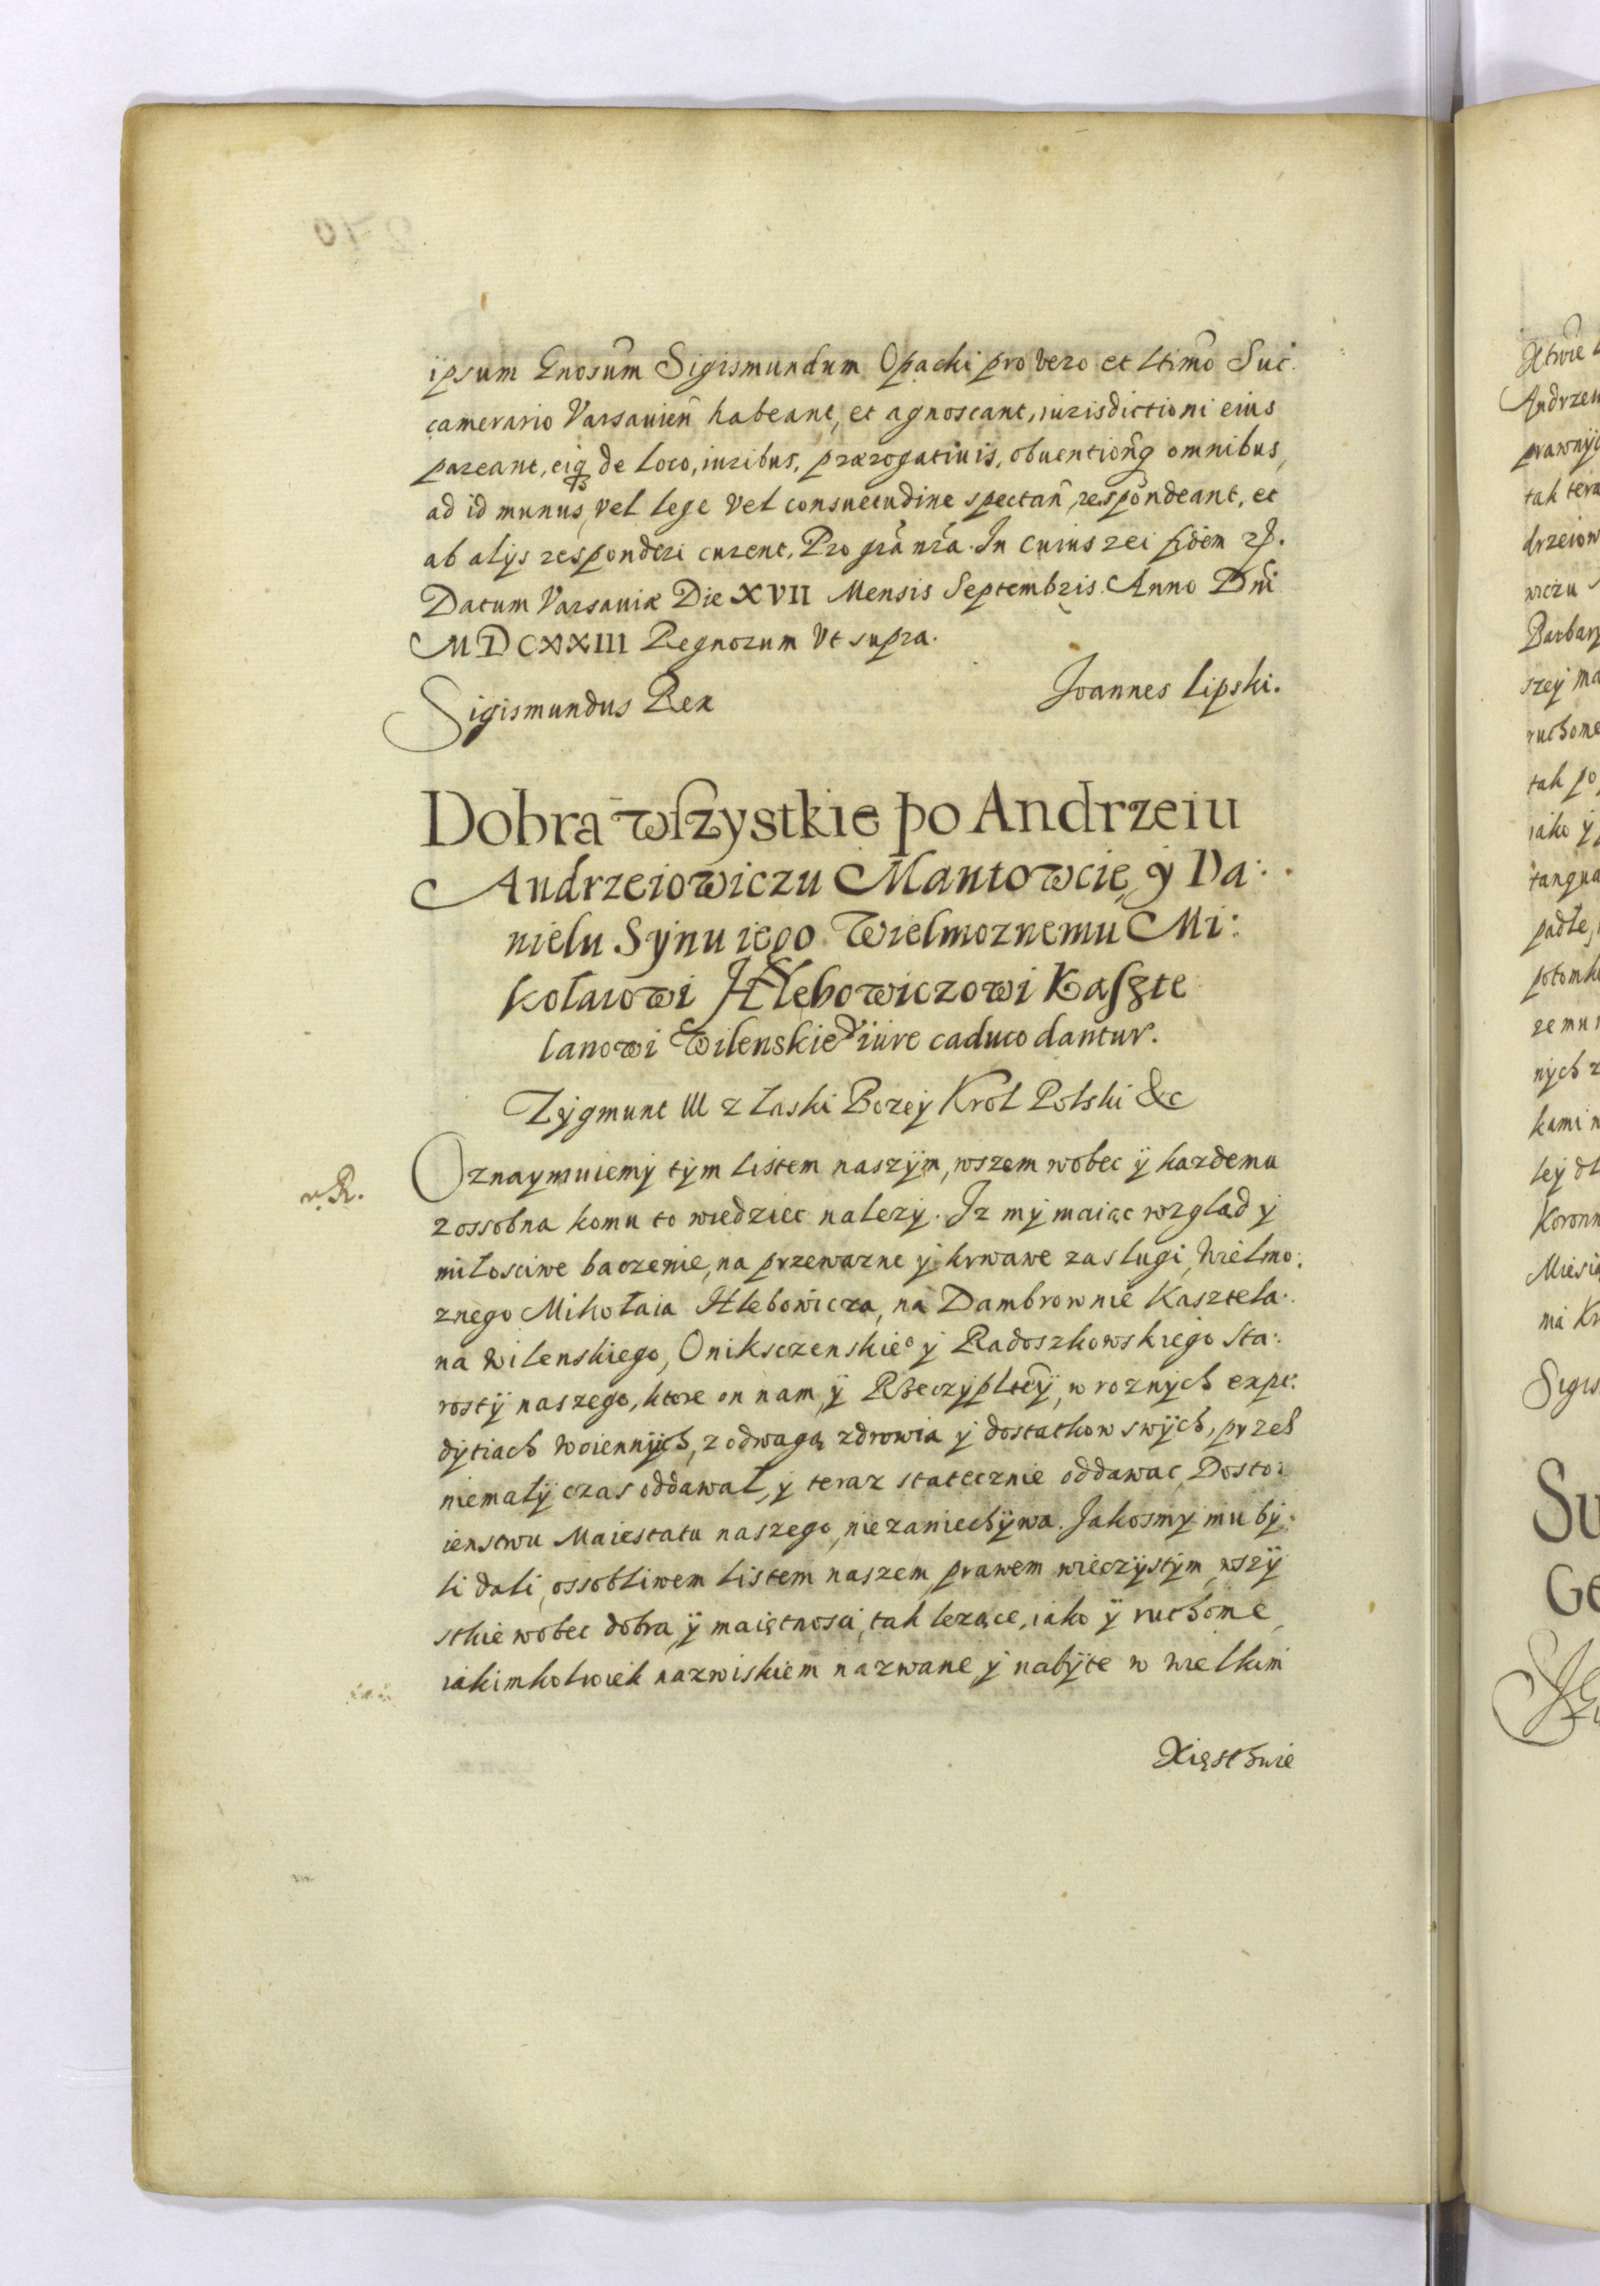 ipsum Gnosum Sigismundum Opacki pro vero et Ltimo Suc:
camerario Varsavien habeant, et agnoscant, iurisdictioni eius
pareant, eiq de Loco, iuribus, prærogativis, obventionq omnibus,
ad id munus, vel lege vel consuetudine spectan, respondeant, et
ab alijs responderi curent. Pro gra nra. In cuius rei fidem
Datum Varsaviæ Die XVII Mensis Septembris Anno Dni
MDCXXIII Regnorum Ut supra.
Sigismundus Rex
Joannes Lipski.
Dobra wszystkie po Andrzeiu
Andrzeiowiczu Mantowcie, y Da:
nielu Synu iego Wielmoznemu Mi:
kołaiowi Hlebowiczowi Kaszte
lanowi Wilenskieo iure caduco dantur.
Zygmunt III z Łaski Bozey Krol Polski &c
r. R.
Oznaymuiemy tym listem naszym, wszem wobec y kazdemu
z ossobna komu to wiedziec nalezy. Iz my maiąc wzglad y
miłosciwe baczenie, na przewazne y krwawe zaslugi, Wielmo:
znego Mikołaia Hlebowicza, na Dambrownie Kasztela:
na Wilenskiego, Onikszczenskieo y Radoszkowskiego Sta:
rosty naszego, ktore on nam, y Rzeczypltey, w roznych expe:
dytiach woiennych, z odwagą zdrowia y dostatkow swych, przez
niemały czas oddawał, y teraz statecznie oddawac, Dosto:
ienstwu Maiestatu naszego, niezaniechywa. Jakosmy mu by:
li dali, ossobliwem listem naszem, prawem wieczystym, wszy
stkie wobec dobra, y maiętnosci, tak lezące, iako y ruchome,
iakimkolwiek nazwiskiem nazwane y nabyte w wielkim
Xięsthwie